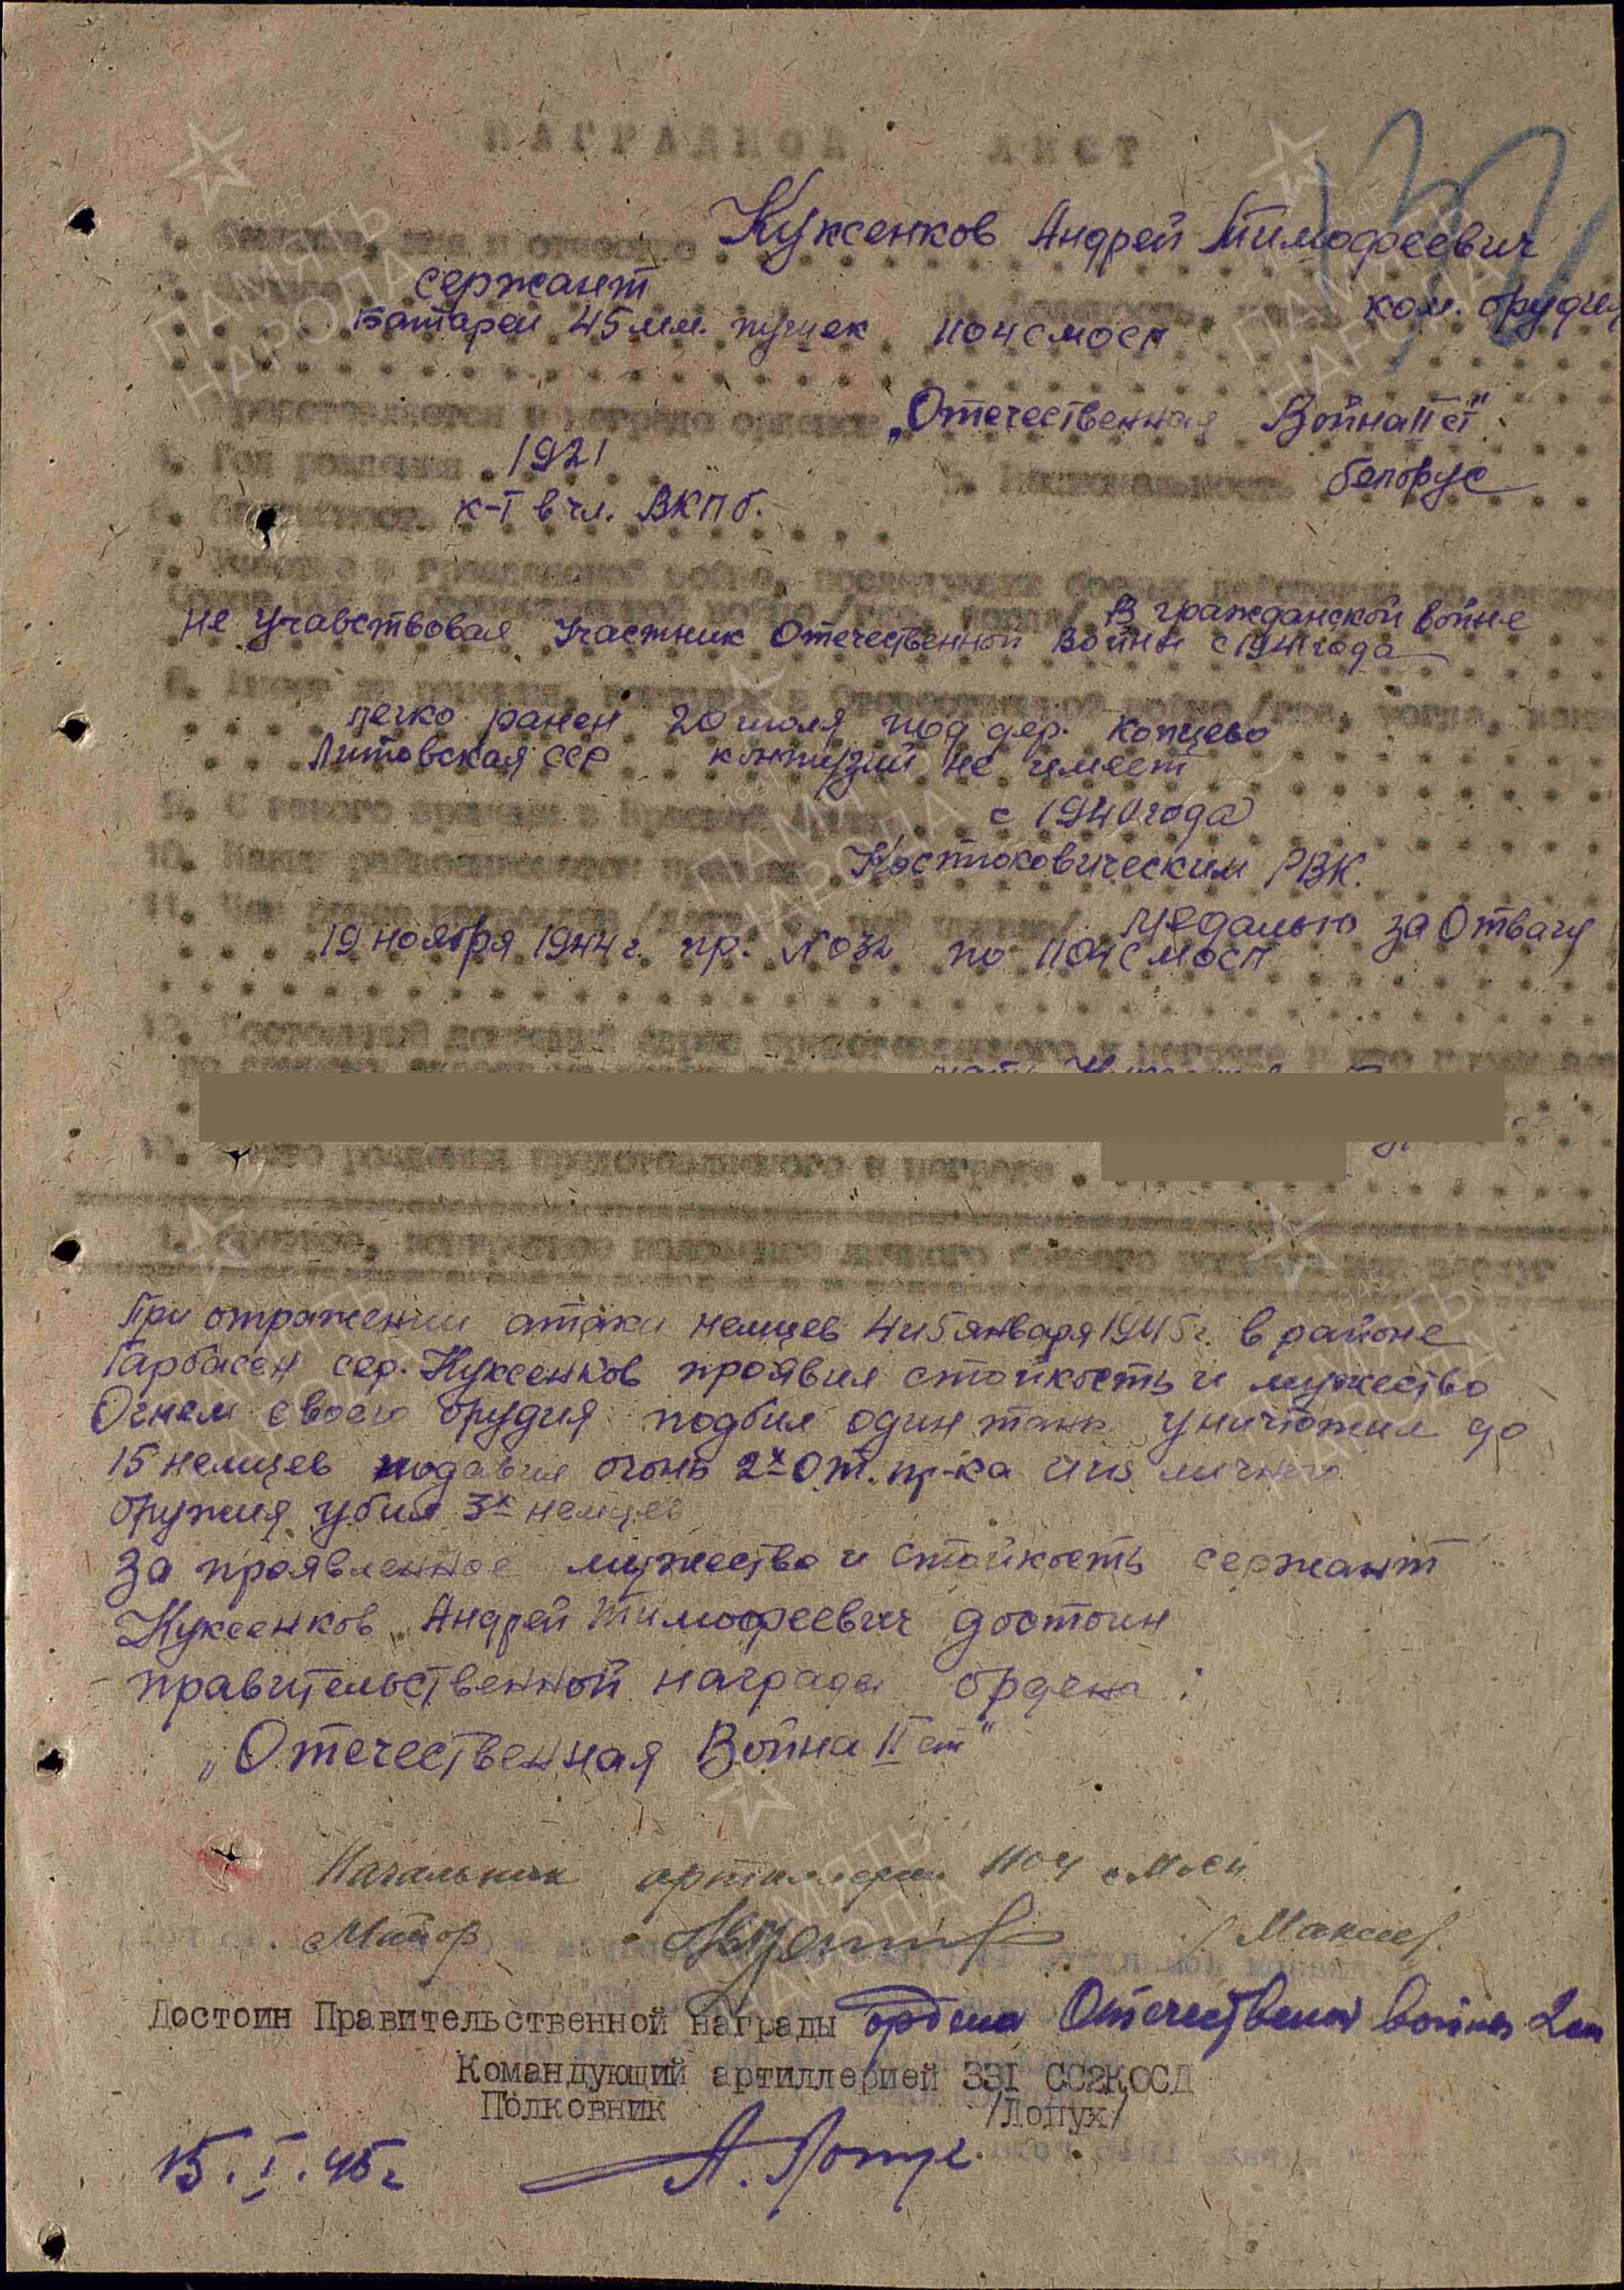 НАГРАДНОЙ ЛИСТ
1. Фамилия, имя и отчество Куксенков Андрей Тимофеевич
сержант ком. орудия
Батареи 45 мм. пушек 1104 смосп
представляется к награде ордена „Отечественная Война II ст"
4. Год рождения 1921 5. Национальность белорус
6. Партийность к-т в чл. ВКПб.
7. Участие в гражданской войне, последующих боевых действиях по защите
СССР и отечественной войне /где, когда/ В гражданской войне
не учавствовал Участник Отечественной войны с 1941 года
8. Имеет ли ранения, контузии в Отечественной войне /где, когда,
легко ранен 20 июля под дер. Копцево
Литовская ССР контузий не имеет
9. С какого времени в Красной Армии с 1940 года
10. Каким райвоенкоматом призван Костюковическим РВК.
11. Чем ранее награжден Медалью за Отвагу
19 ноября 1944 г. пр. № 032 по 1104 смосп
12. Постоянный домашний адрес представляемого к награде и
13. Место рождения представляемого к награде
1. Краткое, конкретное изложение личного боевого подвига или заслуг
При отражении атаки немцев 4 и 5 января 1945 г. в районе
Гарбасен сер. Куксенков проявил стойкость и мужество
Огнем своего орудия подбил один танк уничтожил до
15 немцев подавил огонь 2х О.т. пр-ка и из личного
оружия убил 3х немцев
За проявленное мужество и стойкость сержант
Куксенков Андрей Тимофеевич достоин
правительственной награды ордена:
„Отечественная Война II ст"
Начальник артиллерии 1104
Майор
Достоин Правительственной награды ордена Отечественной войны 2 ст
Командующий артиллерией 331 ССКОСД
Полковник /Лопух/
15.I.45 г А. Лопух
ПАМЯТЬ
НАРОДА